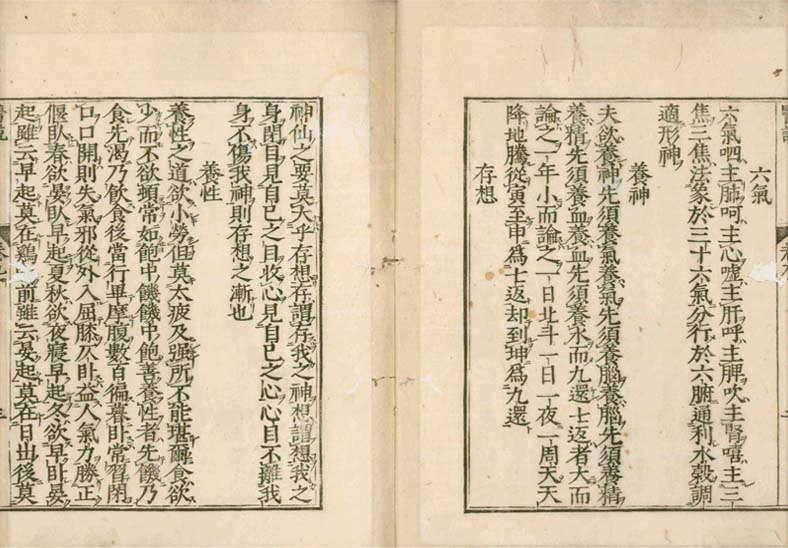 六氣
六氣呬主肺呵主心噓主肝呼主脾吹主腎嘻主三
焦三焦法象於三十六氣分行於六腑通利水穀調
適形神
養神
夫欲養神先須養氣養氣先須養腦養腦先須養精
養精先須養血養血先須養水而九還七返者大而
論之一年小而論之一日北斗一日一夜一周天天
降地騰從寅至申爲七返却到坤爲九還
存想
神仙之要莫大乎存想存謂存我之神想謂想我之
身閉目見自己之目收心見自己之心心目不離我
身不傷我神則存想之漸也
養性
養性之道欲小勞但莫太疲及强所不能堪爾食欲
少而不欲頓常如飽中饑饑中飽善養性者先饑乃
食先渴乃飲食後當行畢摩腹數百徧暮卧常習閉
口口開則失氣邪從外入屈膝仄卧益人氣力勝正
偃卧春欲晏卧早起夏秋欲夜寢早起冬欲早卧晏
起雖云早起莫在鷄前雖云晏起莫在日出後莫